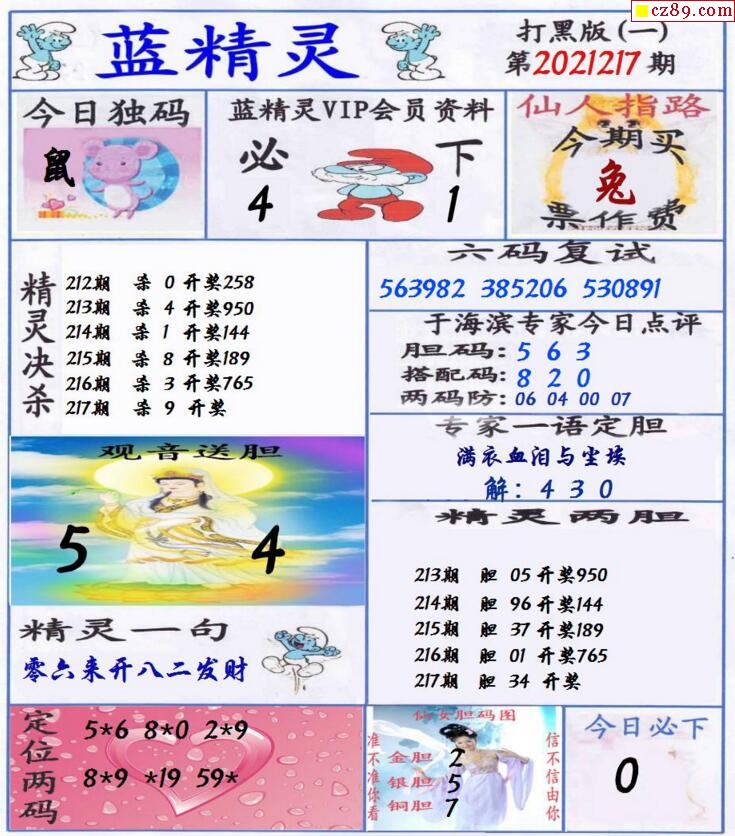 cz89.com
蓝精灵
打黑版(一)
第2021217期
今日独码
鼠
蓝精灵VIP会员资料
必 下
4 1
仙人指路
今期买
兔
票作费
精灵决杀
212期 杀 0 开奖258
213期 杀 4 开奖950
214期 杀 1 开奖144
215期 杀 8 开奖189
216期 杀 3 开奖765
217期 杀 9 开奖
六码复试
563982 385206 530891
于海滨专家今日点评
胆码: 5 6 3
搭配码: 8 2 0
两码防: 06 04 00 07
专家一语定胆
满衣血泪与尘埃
解: 4 3 0
观音送胆
5 4
精灵两胆
213期 胆 05 开奖950
214期 胆 96 开奖144
215期 胆 37 开奖189
216期 胆 01 开奖765
217期 胆 34 开奖
精灵一句
零六来开八二发财
定位两码
5*6 8*0 2*9
8*9 *19 59*
仙女胆码图
准不准你看
金胆 2
银胆 5
铜胆 7
信不信由你
今日必下
0